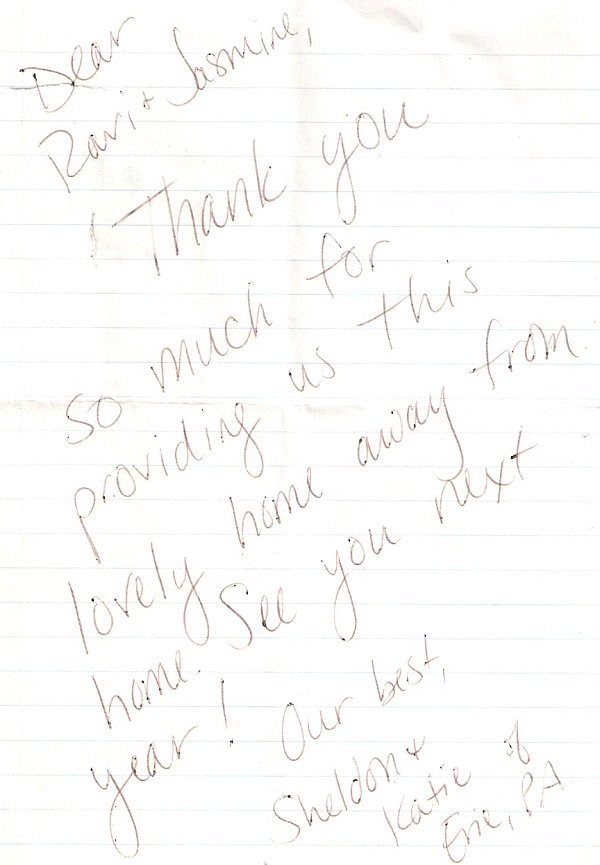 Dear
Ravi + Jasmine,
Thank you
so much for
providing us this
lovely home away from
home. See you next
year! Our best,
Sheldon +
Katie of
Erie, PA